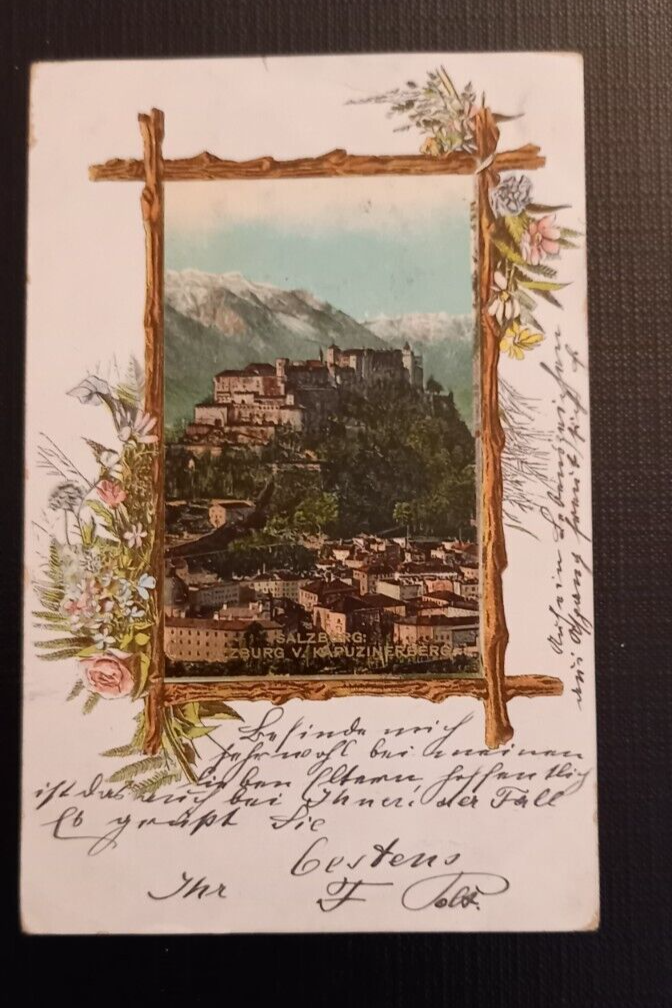 SALZBURG:
ZBURG V. KAPUZINERBERG
Befinde mich
sehr wohl bei meinen
lieben Eltern, hoffentlich
ist das auch bei Ihnen, der Fall
Es grüßt Sie
bestens
Ihr F
Auf ein Lebenszeichen
aus